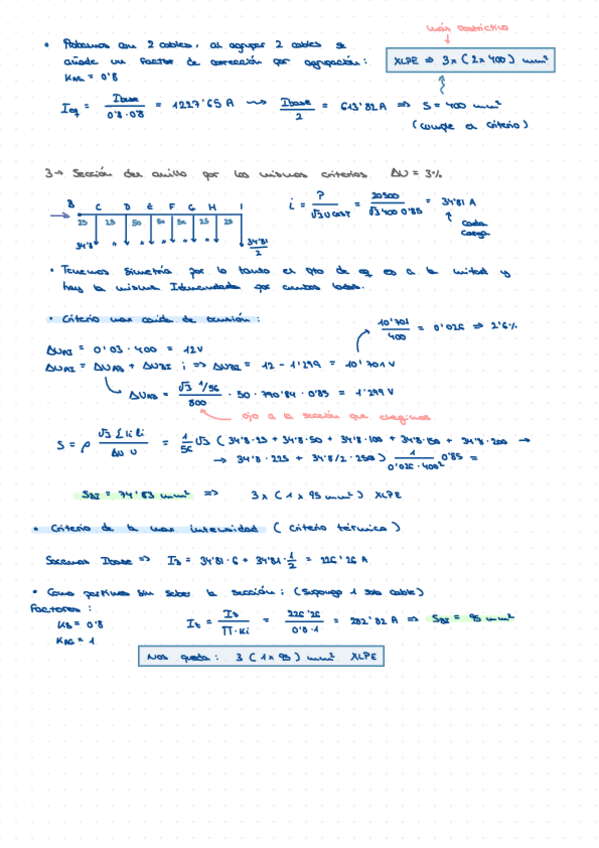 más restrictivo
• Probamos con 2 cables, al agrupar 2 cables se
añade un factor de corrección por agrupación:
KAG = 0'8
XLPE ⇒ 3x (2x400) mm²
Ieq = Ibase / 0'8·0'8 = 1227'65 A ⇝ Ibase / 2 = 613'82 A ⇒ S = 400 mm²
(cumple el criterio)
3→ Sección del anillo por los mismos criterios ΔU = 3%
B C D E F G H I
25 25 50 50 25 25 25
34'8 " " " " " 34'81 / 2
i = P / √3 U cos φ = 20500 / √3 400 0'85 = 34'81 A
cada carga
• Tenemos simetría por lo tanto el pto de eq es a la mitad y
hay la misma Intensidad por ambos lados.
• Criterio max caida de tensión:
10'701 / 400 = 0'026 ⇒ 2'6%
ΔUAI = 0'03 · 400 = 12V
ΔUAI = ΔUAB + ΔUBI ; ⇒ ΔUBI = 12 - 1'299 = 10'701 V
ΔUAB = √3 1/56 / 800 · 50 · 790'84 · 0'85 = 1'299 V
ojo a la sección que elegimos
S = ρ √3 Σ li Ii / ΔU U = 1/56 √3 (34'8·25 + 34'8·50 + 34'8·100 + 34'8·150 + 34'8·200 →
→ 34'8·225 + 34'8/2·250) 1 / 0'026·400² 0'85 =
SBI = 74'83 mm² ⇒ 3x (1x95 mm²) XLPE
• Criterio de la max intensidad (Criterio térmico)
Sacamos Ibase ⇒ IB = 34'81·6 + 34'81·1/2 = 226'26 A
• Como partimos sin saber la sección: (Supongo 1 solo cable)
Factores:
KB = 0'8
KAG = 1
It = IB / Π·Ki = 226'26 / 0'8·1 = 282'82 A ⇒ SBI = 95 mm²
Nos queda: 3 (1x95) mm² XLPE